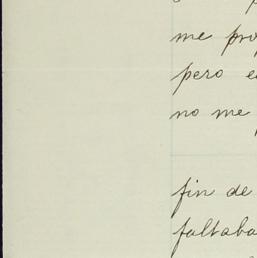 me pro
pero e
no me
fin de
faltaba